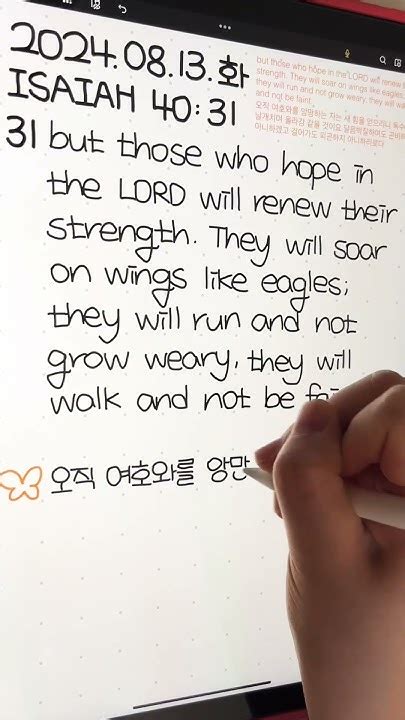 2024.08.13.화
ISAIAH 40:31
but those who hope in the LORD will renew
strength. They will soar on wings like eagles
they will run and not grow weary, they will wa
and not be faint
오직 여호와를 앙망하는 자는 새 힘을 얻으리니 독수
날개치며 올라감 같을 것이요 달음박질하여도 곤비
아니하겠고 걸어가도 피곤하지 아니하리로다
31 but those who hope in
the LORD will renew their
strength. They will soar
on wings like eagles;
they will run and not
grow weary, they will
walk and not be
오직 여호와를 앙만